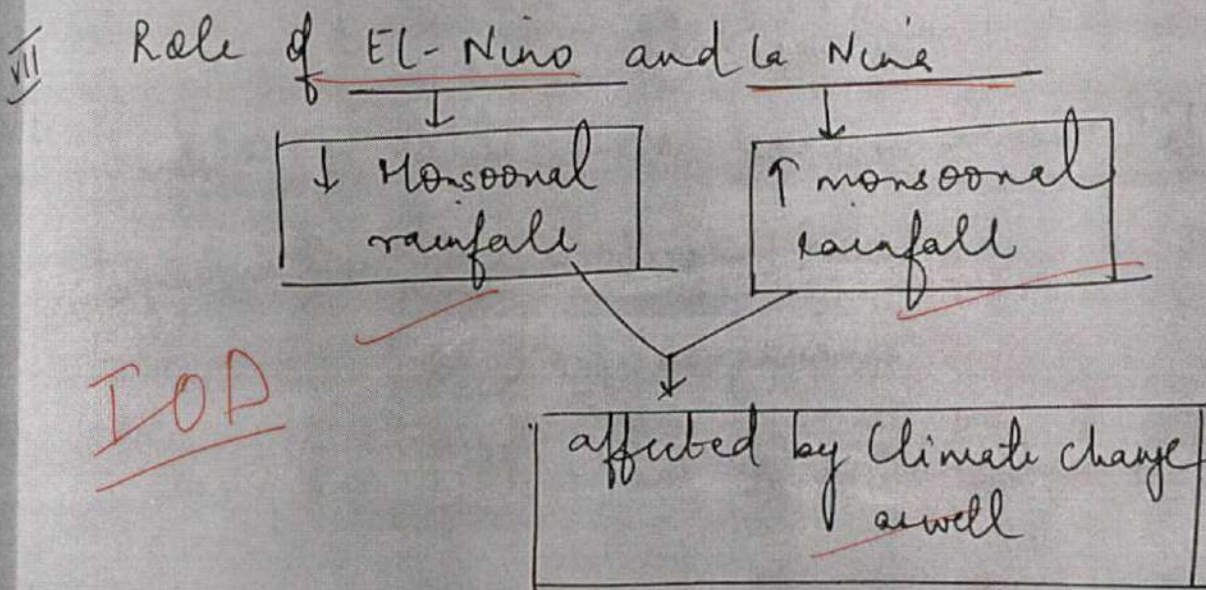 VII Role of El-Nino and la Nina
↓ Monsoonal
rainfall
↑ monsoonal
rainfall
IOD
affected by Climate change
aswell